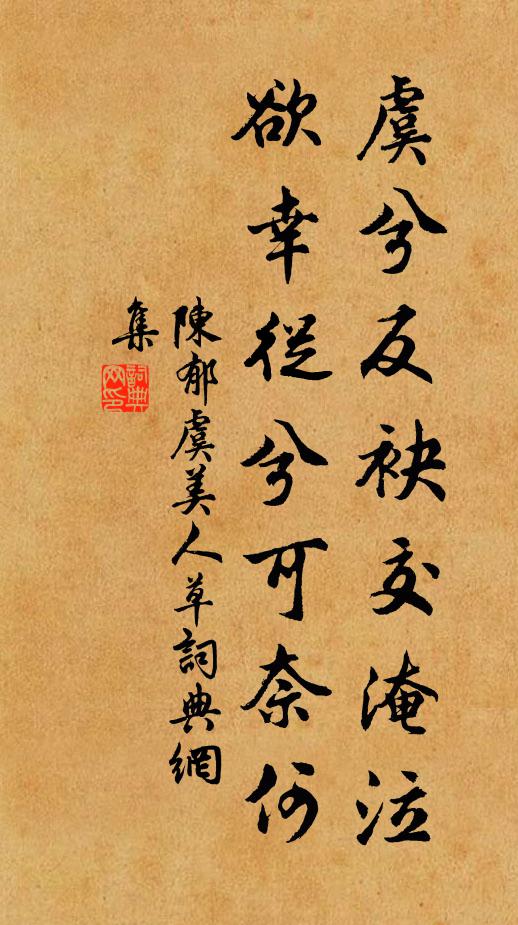 虞兮反袂交淹泣
欲幸從兮可奈何
陳郁虞美人草詞典網
集
詞典網印